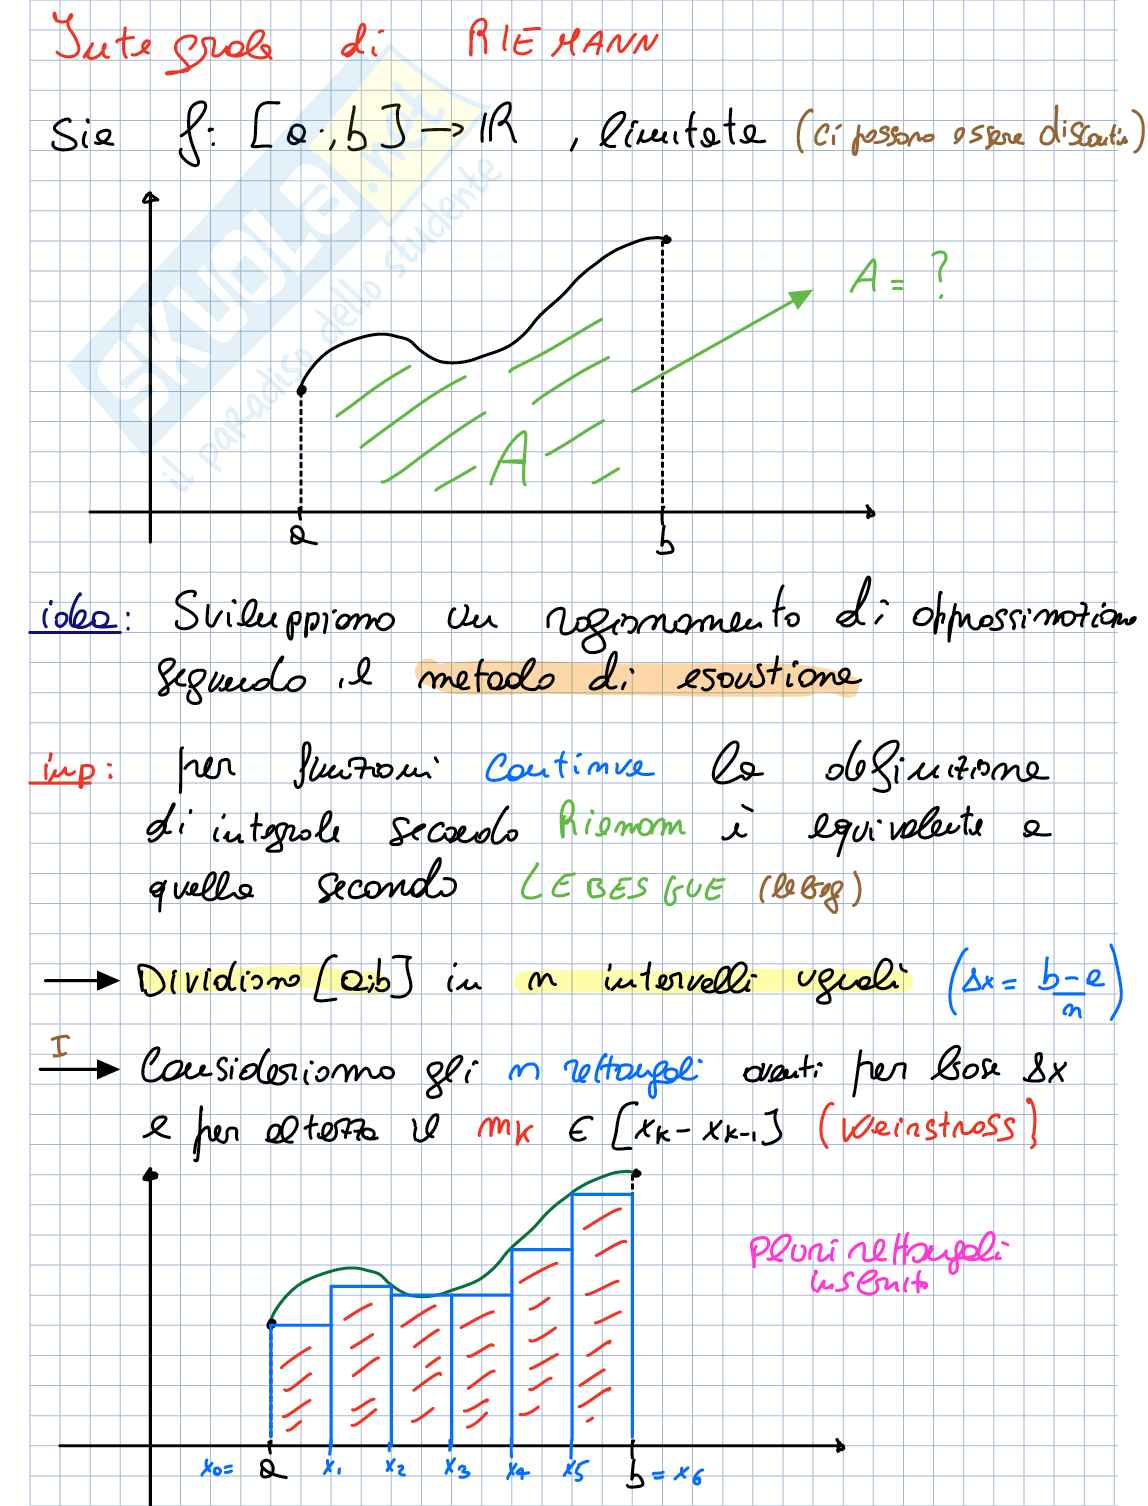 Integrale di RIEMANN
Sia f: [a;b] → ℝ , limitata (ci possono essere discontin)
SKUOLA.net
il paradiso dello studente
A = ?
A
a b
idea: Sviluppiamo un ragionamento di approssimazione
seguendo il metodo di esaustione
imp: per funzioni continue la definizione
di integrale secondo Riemann è equivalente a
quella secondo LEBESGUE (lebeg)
→ Dividiamo [a;b] in n intervalli uguali (Δx = b-a/n)
I → Consideriamo gli n rettangoli aventi per base Δx
e per altezza il mK ∈ [xK - xK-1] (Weinstrass)
Pluri rettangoli
inscritto
x0= a x1 x2 x3 x4 x5 b = x6